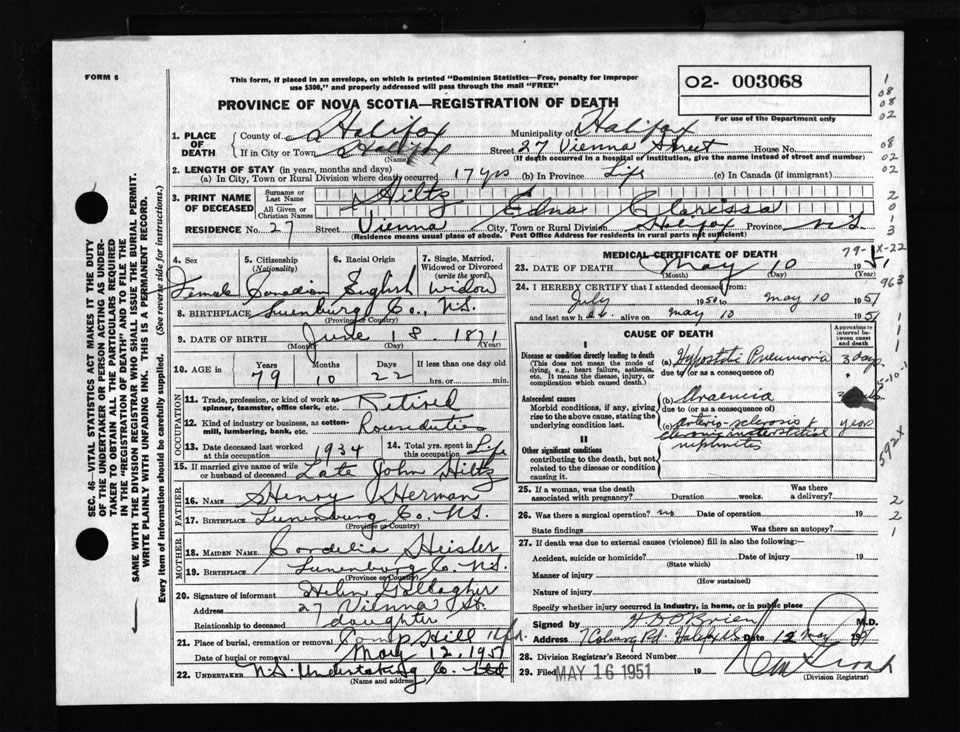 FORM 6
This form, if placed in an envelope, on which is printed "Dominion Statistics—Free, penalty for improper
use $300," and properly addressed will pass through the mail "FREE"
O2- 003068
For use of the Department only
PROVINCE OF NOVA SCOTIA—REGISTRATION OF DEATH
1. PLACE OF DEATH County of Halifax Municipality of Halifax
If in City or Town Halifax Street 27 Vienna Street House No.
(Name) (If death occurred in a hospital or institution, give the name instead of street and number)
2. LENGTH OF STAY (in years, months and days)
(a) In City, Town or Rural Division where death occurred 17 yrs (b) In Province Life (c) In Canada (if immigrant)
3. PRINT NAME OF DECEASED Surname or Last Name Hiltz
All Given or Christian Names Edna Clarissa
RESIDENCE No. 27 Street Vienna City, Town or Rural Division Halifax Province N.S.
(Residence means usual place of abode. Post Office Address for residents in rural parts not sufficient)
4. Sex 5. Citizenship (Nationality) 6. Racial Origin 7. Single, Married, Widowed or Divorced (write the word)
Female Canadian English Widow
8. BIRTHPLACE Lunenburg Co., N.S.
(Province or Country)
9. DATE OF BIRTH June 18 1871
(Month) (Day) (Year)
10. AGE in Years Months Days If less than one day old
79 10 22 hrs. or min.
OCCUPATION
11. Trade, profession, or kind of work as spinner, teamster, office clerk, etc. Retired
12. Kind of industry or business, as cotton-mill, lumbering, bank, etc. House duties
13. Date deceased last worked at this occupation 1934 14. Total yrs. spent in this occupation Life
15. If married give name of wife or husband of deceased Late John Hiltz
FATHER
16. NAME Henry Herman
17. BIRTHPLACE Lunenburg Co. N.S.
(Province or Country)
MOTHER
18. MAIDEN NAME Cordelia Heisler
19. BIRTHPLACE Lunenburg Co. N.S.
(Province or Country)
20. Signature of informant Helen Gallagher
Address 27 Vienna St.
Relationship to deceased daughter
21. Place of burial, cremation or removal Camp Hill Hfx.
Date of burial or removal May 12, 1951
22. UNDERTAKER N.S. Undertaking Co. Ltd
(Name and address)
MEDICAL CERTIFICATE OF DEATH
23. DATE OF DEATH May 10 1951
(Month) (Day) (Year)
24. I HEREBY CERTIFY that I attended deceased from
July 1950 to May 10 1951
and last saw her alive on May 10 1951
CAUSE OF DEATH
Approximate interval between onset and death
I
Disease or condition directly leading to death (a) Hypostatic Pneumonia 3 days
(This does not mean the mode of dying, e.g., heart failure, asthenia, etc. It means the disease, injury, or complication which caused death.)
due to (or as a consequence of)
Antecedent causes (b) Uraemia
Morbid conditions, if any, giving rise to the above cause, stating the underlying condition last.
due to (or as a consequence of)
(c) Arterio-sclerosis & years
chronic interstitial
nephritis
II
Other significant conditions
contributing to the death, but not related to the disease or condition causing it.
25. If a woman, was the death associated with pregnancy? Duration weeks. Was there a delivery?
26. Was there a surgical operation? no Date of operation 19
State findings Was there an autopsy?
27. If death was due to external causes (violence) fill in also the following:—
Accident, suicide or homicide? Date of injury 19
(State which)
Manner of injury
(How sustained)
Nature of injury
Specify whether injury occurred in industry, in home, or in public place
Signed by H D O'Brien M.D.
Address 7 Coburg Rd. Halifax N.S. Date 12 May
28. Division Registrar's Record Number
29. Filed MAY 16 1951 19
(Division Registrar)
SEC. 46—VITAL STATISTICS ACT MAKES IT THE DUTY
OF THE UNDERTAKER OR PERSON ACTING AS UNDER-
TAKER TO OBTAIN ALL THE PARTICULARS REQUIRED
IN THE "REGISTRATION OF DEATH" AND TO FILE THE
SAME WITH THE DIVISION REGISTRAR WHO SHALL ISSUE THE BURIAL PERMIT.
WRITE PLAINLY WITH UNFADING INK. THIS IS A PERMANENT RECORD.
Every item of information should be carefully supplied. (See reverse side for instructions.)
1
08
08
02
08
02
2
0
1
3
79-1
X-22
963
1
1
1
1
5-10-1
592X
2
2
1